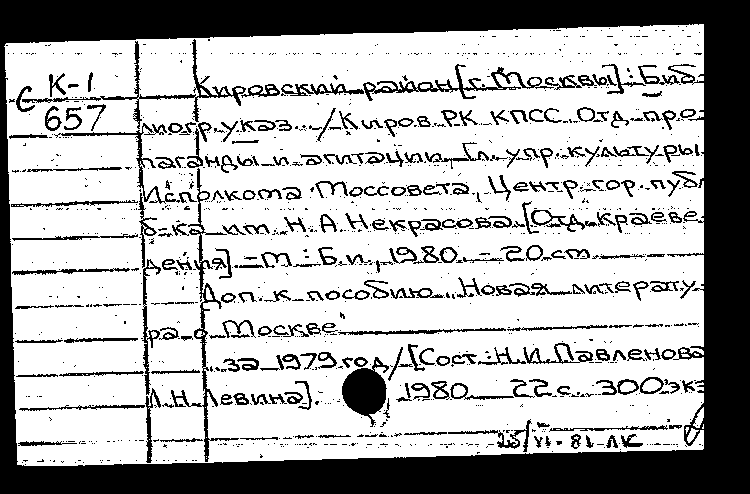 С К-1
657
Кировский район [г. Москвы] : Биб-
лиогр. указ. / Киров. РК КПСС. Отд. про-
паганды и агитации, Гл. упр. культуры
Исполкома Моссовета, Центр. гор. публ.
б-ка им. Н. А. Некрасова. [Отд. краеве-
дения] - М. : Б. и., 1980. - 20 см
Доп. к пособию „Новая литерату-
ра о Москве"
... за 1979 год / [Сост. : Н. И. Павленова,
Л. Н. Левина]. 1980. 22 с. 300 экз
25/VI-81 ЛК